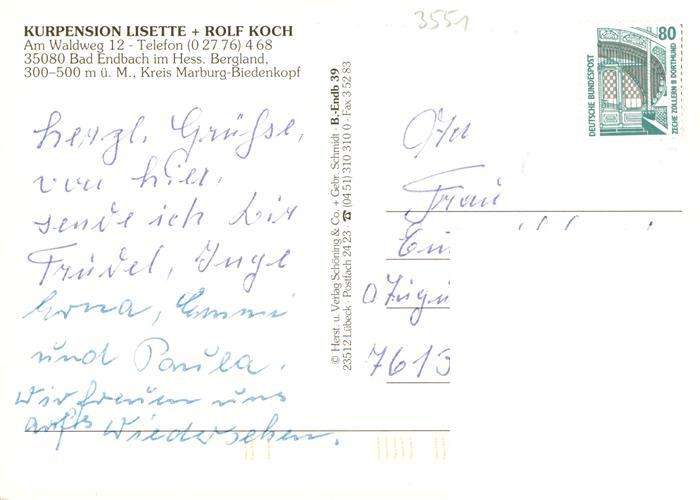 KURPENSION LISETTE + ROLF KOCH
Am Waldweg 12 - Telefon (0 27 76) 4 68
35080 Bad Endbach im Hess. Bergland,
300–500 m ü. M., Kreis Marburg-Biedenkopf
herzl. Grüße,
von hier.
sende ich Dir
Trudel, Inge
Erna, Emmi
und Paula.
Wir freuen uns
aufs Wiedersehen.
© Herst. u. Verlag Schöning & Co. + Gebr. Schmidt · B.-Endb 39
23512 Lübeck · Postfach 24 23 · ☎ (04 51) 310 310 0 · Fax 3 52 83
3551
DEUTSCHE BUNDESPOST
80
ZECHE ZOLLERN II DORTMUND
Frau
7613